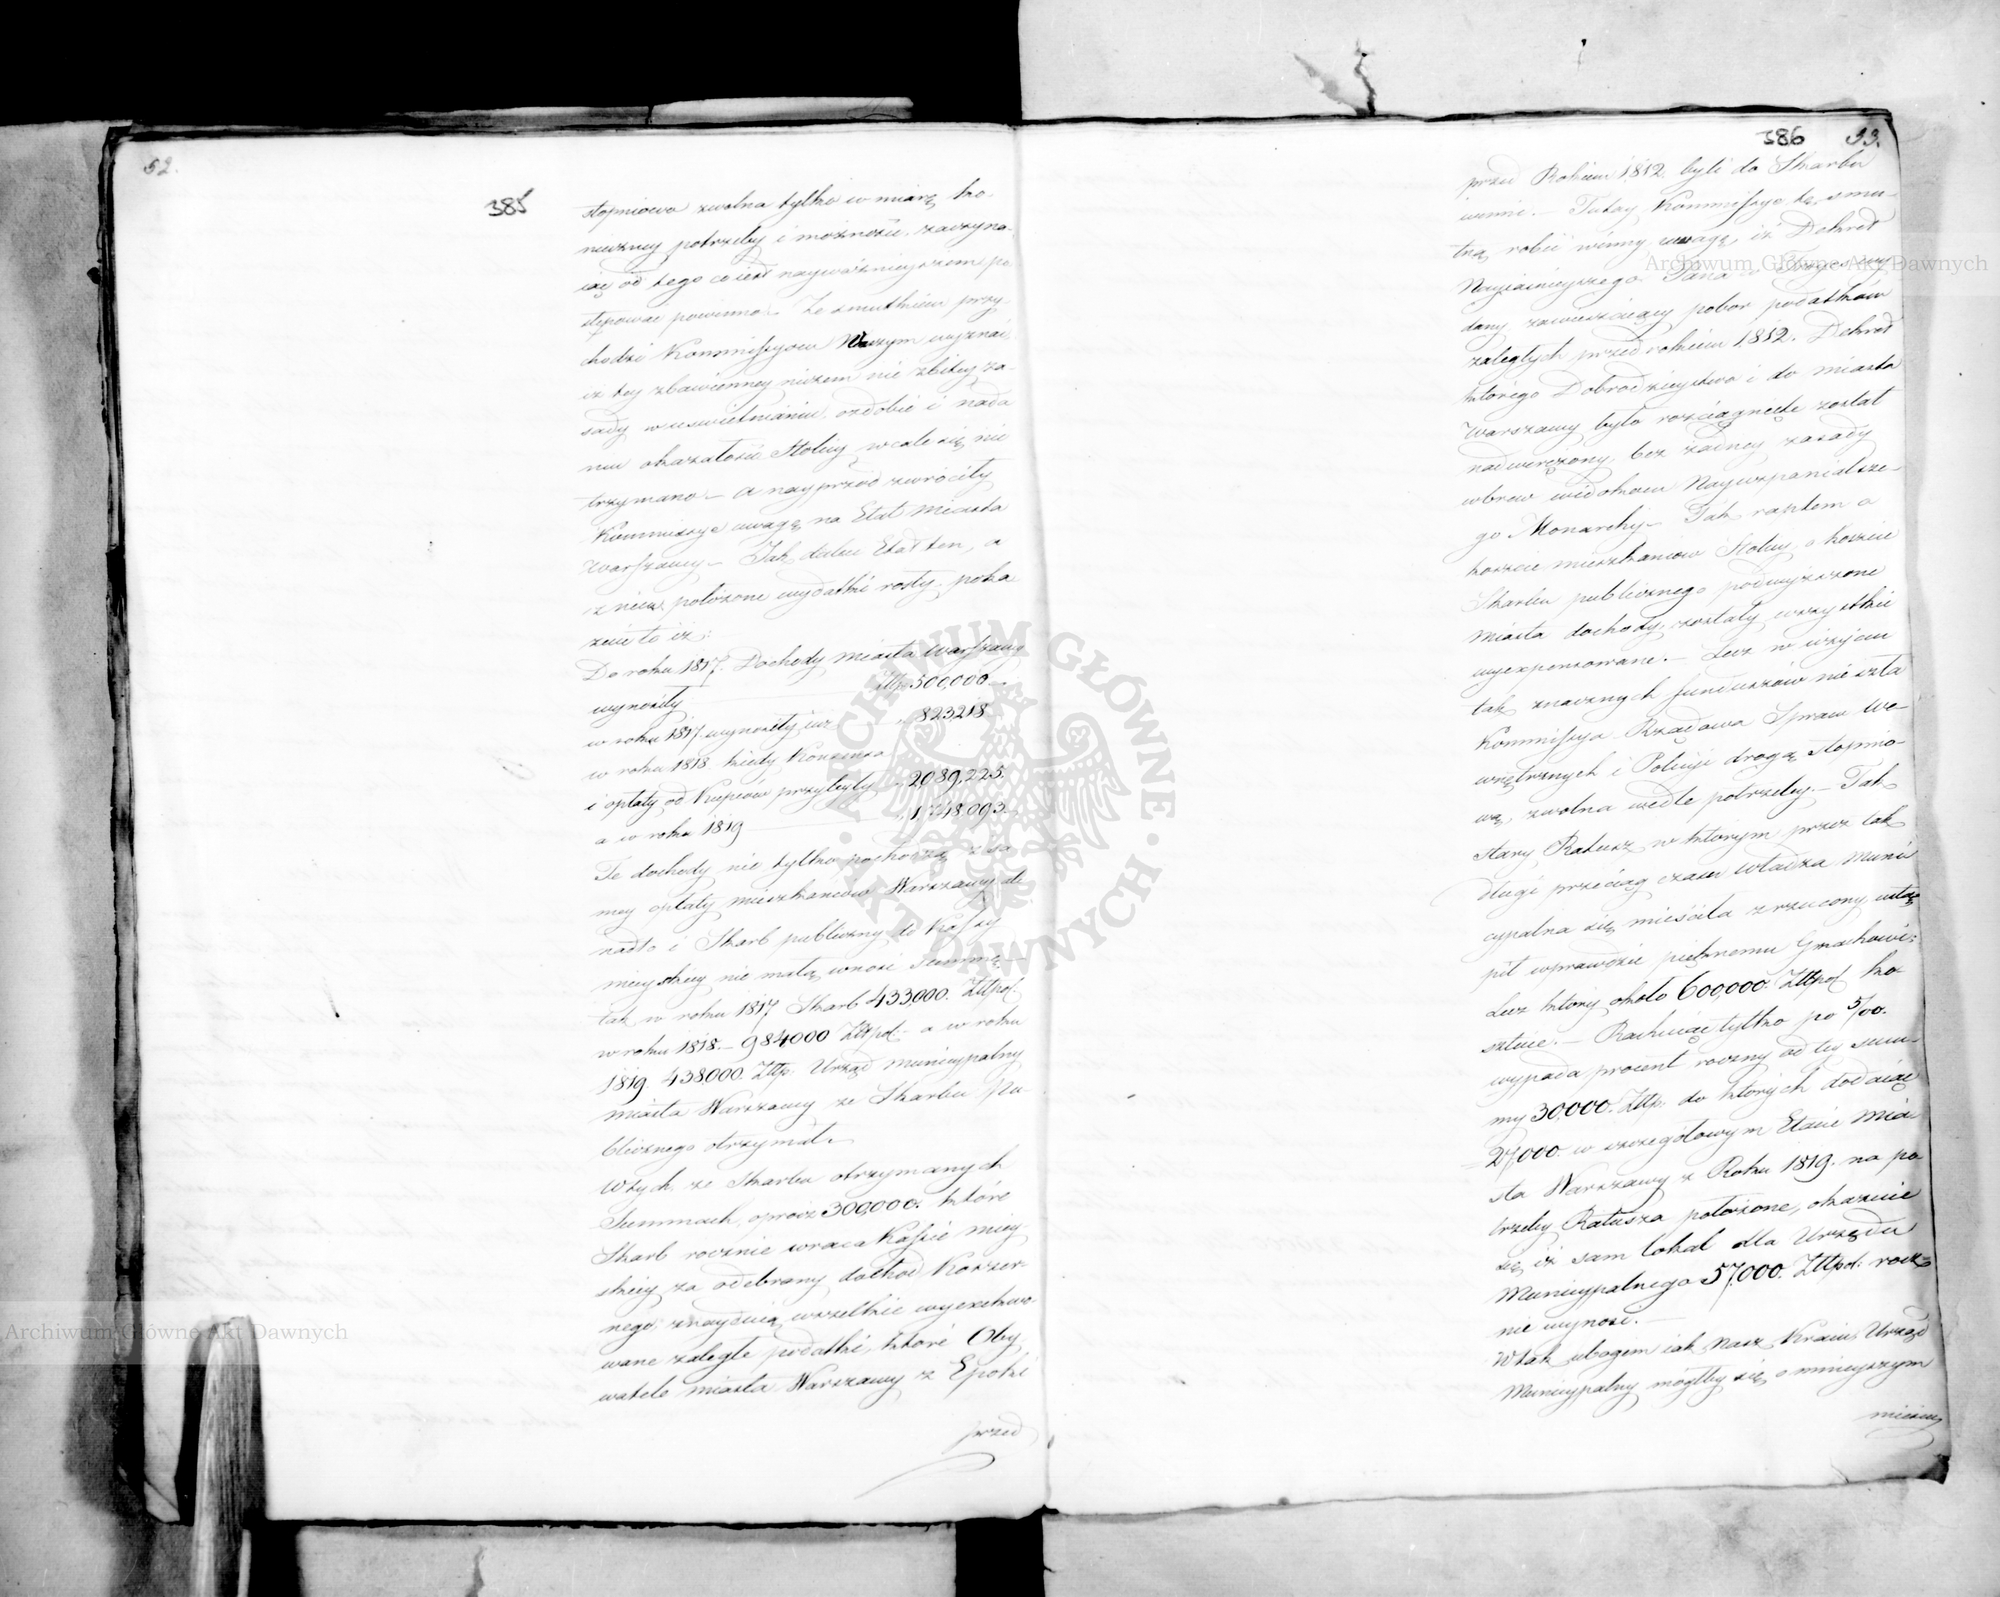 52.
385
stopniowo zwolna tylko w miarę ko-
nieczney potrzeby i możności, zaczyna-
iąc od tego co iest nayważnieyszem po
stępować powinno. Ze smutkiem przy
chodzi Kommissyom Waszym wyznać,
iż tey zbawienney niczem nie zbitey za-
sady w uswietnianiu, ozdobie i nada
niu okazałości Stolicy, wcale się nie
trzymano – a nayprzód zwróciły
Kommissye uwagę na Etat Miasta
Warszawy – Jak daleu Etat ten, a
z niem położone wydatki rosły, poka
zuie to iż:
Do roku 1817. Dochody Miasta Warszawy
wynosiły Złtp. 500,000 –
w roku 1817 wynosiły już „ 823218
w roku 1818. kiedy Konsensa
i opłaty od Kupców przybyły „ 2,089,225.
a w roku 1819 „ 1,748,093 –
Te dochody nie tylko pochodzą z sa
mey opłaty mieszkańców Warszawy ale
nadto i Skarb publiczny do Kassy
mieyskiey nie małą wnosi summę –
tak w roku 1817 Skarb 433,000. Złtpol.
w roku 1818. – 984000 Złtpol – a w roku
1819. 438,000. Złtp. Urząd Municypalny
miasta Warszawy ze Skarbu Pu-
blicznego otrzymał.
W tych ze Skarbu otrzymanych
Summach, oprócz 300,000. które
Skarb rocznie wraca Kassie miey
skiey za odebrany dochód Koszer-
nego, znayduią wszelkie wyexekwo-
wane zaległe podatki, które Oby
watele miasta Warszawy z Epoki
przed
386 53.
przed Rokiem 1812 byli do Skarbu
winni. – Tutay Kommissye tę smu-
tną robić winny uwagę, iż Dekret
Nayiaśnieyszego Pana
dany zawieszaiący pobor podatków
zaległych przed rokiem 1812. Dekret
którego Dobrodzieystwo i do miasta
Warszawy było rozciągnięte został
nadwerężony, bez żadney zasady
wbrew widokom Naywspanialsze-
go Monarchy – Tak raptem o
koszcie mieszkańców Stolicy, o koszcie
Skarbu publicznego podwyższone
Miasta dochody, zostały wszystkie
wyexpensowane. – Lecz w użyciu
tak znacznych funduszów nie szła
Kommissya Rządowa Spraw We-
wnętrznych i Policyi drogą stopnio-
wą, zwolna wedle potrzeby. – Tak
stary Ratusz w którym przez tak
długi przeciąg czasu Władza Muni
cypalna się mieściła zrzucony ustą
pił wprawdzie pięknemu Gmachowi;
Lecz który około 600,000. Złtpol ko
sztuie. – Rachuiąc tylko po 5/00.
wypada procent roczny od tey sum-
my 30,000. Złtp. do których dodaiąc
27,000. w szczegółowym Etacie Mia-
sta Warszawy z Roku 1819. na po
trzeby Ratusza położone, okazuie
się iż sam lokal dla Urzędu
Municypalnego 57,000. Złtpol. rocz-
nie wynosi. –
W tak ubogim iak Nasz Kraiu, Urząd
Municypalny mógłby się o mnieyszym
mieścić
Archiwum Główne Akt Dawnych
Archiwum Główne Akt Dawnych
ARCHIWUM GŁÓWNE AKT DAWNYCH